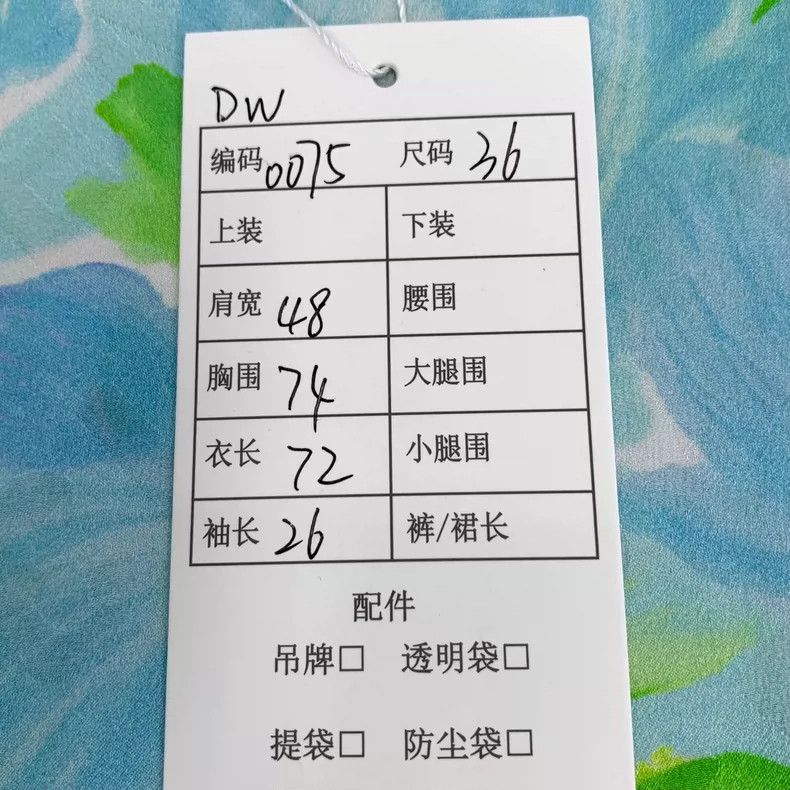 DW
编码 0075 尺码 36
上装 下装
肩宽 48 腰围
胸围 74 大腿围
衣长 72 小腿围
袖长 26 裤/裙长
配件
吊牌□ 透明袋□
提袋□ 防尘袋□